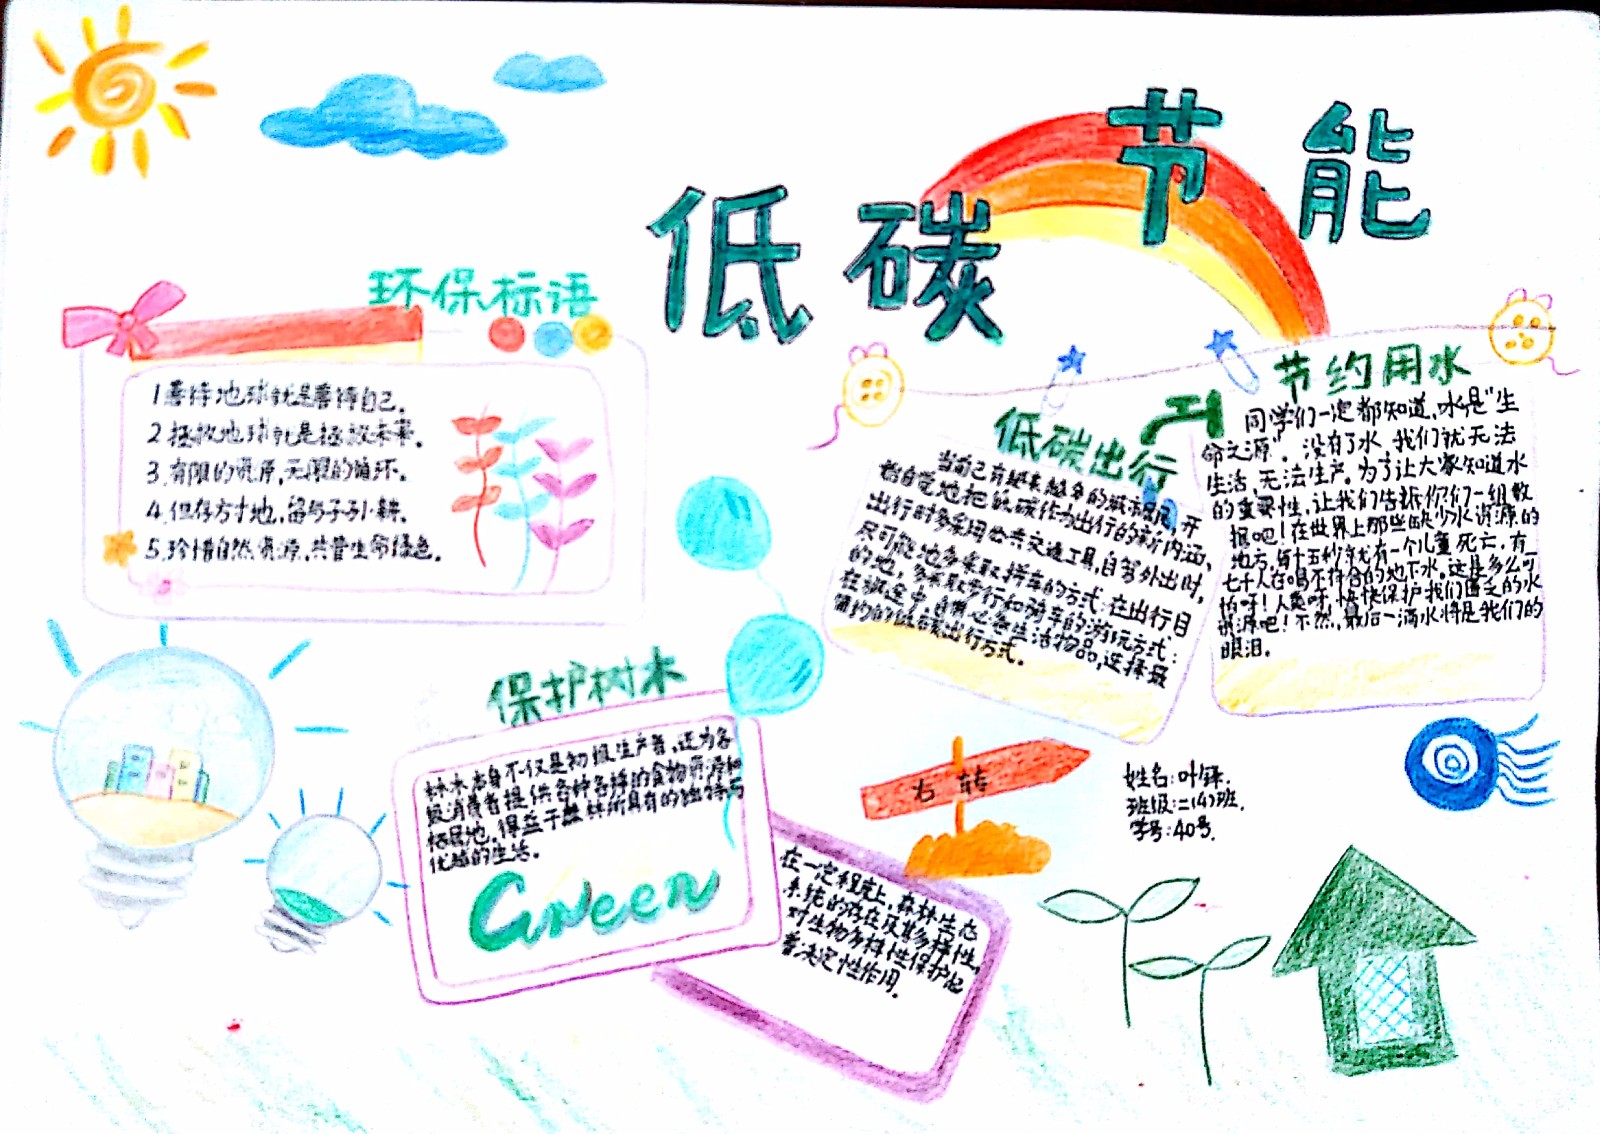 节能
低碳
环保标语
1善待地球就是善待自己.
2拯救地球就是拯救未来.
3.有限的资源,无限的循环.
4.但存方寸地,留与子孙耕.
5.珍惜自然资源,共营生命绿色.
低碳出行
当前已有越来越多的城市居民,开
始自觉地把低碳作为出行的新内涵,
出行时多采用公共交通工具,自驾外出时,
尽可能地多采取拼车的方式:在出行目
的地,多采取步行和骑车的游玩方式:
在旅途中,自带必备生活物品,选择最
简约的低碳出行方式.
节约用水
同学们一定都知道,水是"生
命之源"。没有了水,我们就无法
生活,无法生产。为了让大家知道水
的重要性,让我们告诉你们一组数
据吧!在世界上那些缺少水资源的
地方,每十五秒就有一个儿童死亡,有
七千人在喝不符合的地下水。这是多么可
怕呀!人类呀,快快保护我们匮乏的水
资源吧!不然,最后一滴水将是我们的
眼泪.
保护树木
林木本身不仅是初级生产者,还为各
级消费者提供各种各样的食物资源和
栖居地,得益于森林所具有的独特与
优越的生活。
Green
在一定程度上,森林生态
系统的存在及其多样性,
对生物多样性保护起
着决定性作用.
右转
姓名:叶
班级:二(4)班.
学号:40号.